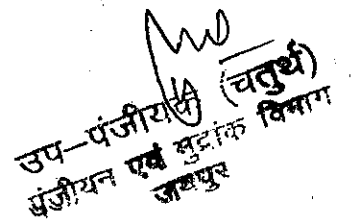 उप-पंजीयक (चतुर्थ)
पंजीयन एवं मुद्रांक विभाग
जयपुर